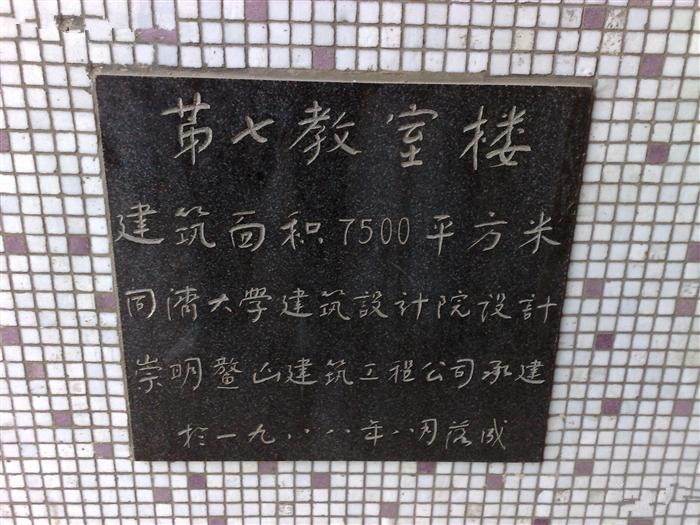 第七教室楼
建筑面积7500平方米
同濟大学建筑設计院设計
崇明鳌山建筑工程公司承建
於一九八八年八月落成